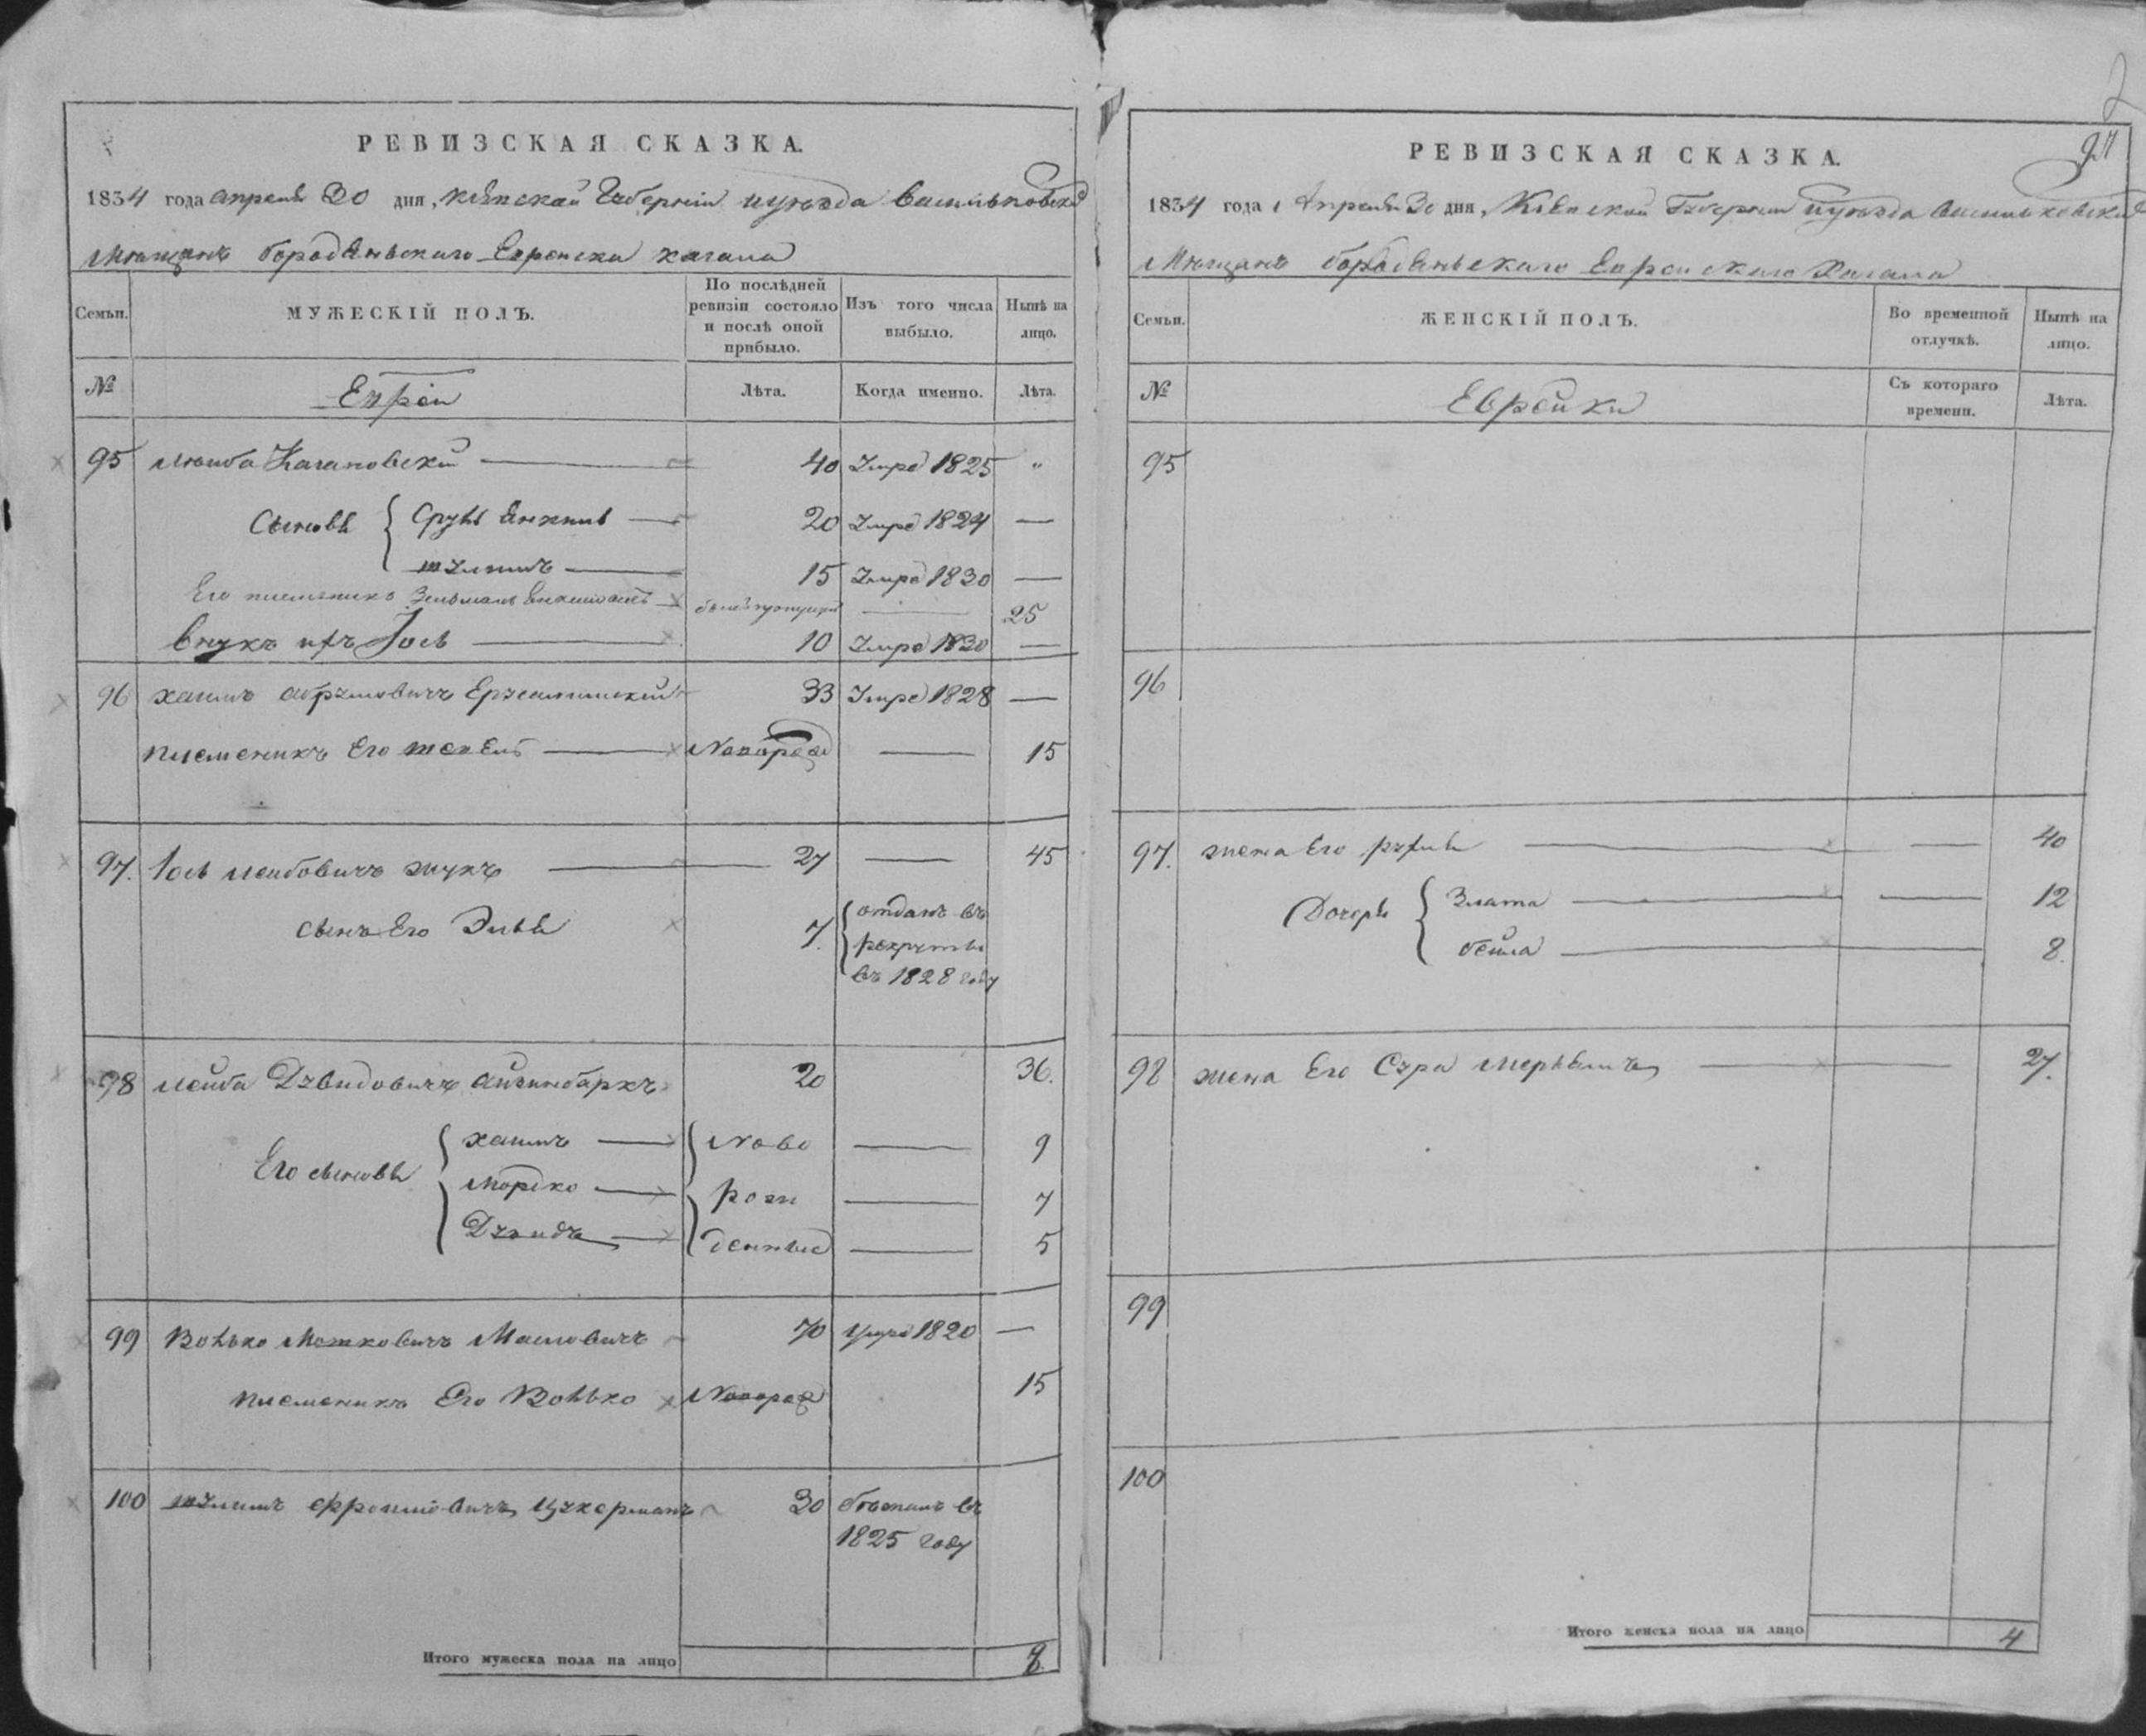 РЕВИЗСКАЯ СКАЗКА.
1834 года апреля 30 дня, Кіевской Губерніи и уѣзда Васильковска
Мѣщанъ Еврейска кагала
Семьи.
МУЖЕСКІЙ ПОЛЪ.
По послѣдней ревизіи состояло и послѣ оной прибыло.
Изъ того числа выбыло.
Нынѣ на лицо.
№
Евреи
Лѣта.
Когда именно.
Лѣта.
95 Лейба Кагановскій 40 Умре 1825 "
Сыновья Сруль Янкель 20 Умре 1824 —
Шулимъ 15 Умре 1830 —
Его племяникъ Зельманъ 25
Внукъ ихъ Іось 10 Умре 1830 —
96 Хаимъ Абрумовичъ 33 Умре 1828 —
племеникъ Его 15
97. Іось Лейбовичъ Жукъ 27 — 45
сынъ Его Эльья 7. отданъ въ
рекруты
въ 1828 году
98 Лейба Дувидовичъ Айзинбаркъ 20 36.
Его сыновья Хаимъ Ново — 9
Мошко рож — 7
Дувидъ денные — 5
99 Волько Мошковичъ 70 Умре 1820 —
племеникъ Его Волько 15
100 Шулимъ Фроимовичъ Цукерманъ 30 бѣжалъ въ
1825 году
Итого мужеска пола на лицо 8.
97
РЕВИЗСКАЯ СКАЗКА.
1834 года Апреля 30 дня, Кіевской Губерніи и уѣзда Васильковска
Мѣщанъ Еврейскаго Кагала
Семьи.
ЖЕНСКІЙ ПОЛЪ.
Во временной отлучкѣ.
Нынѣ на лицо.
№
Еврейки
Съ котораго времени.
Лѣта.
95
96
97. жена Его Рухля — 40
Дочери Злата — 12
Бейла 8.
98 жена Его Сура 27.
99
100
Итого женска пола на лицо 4